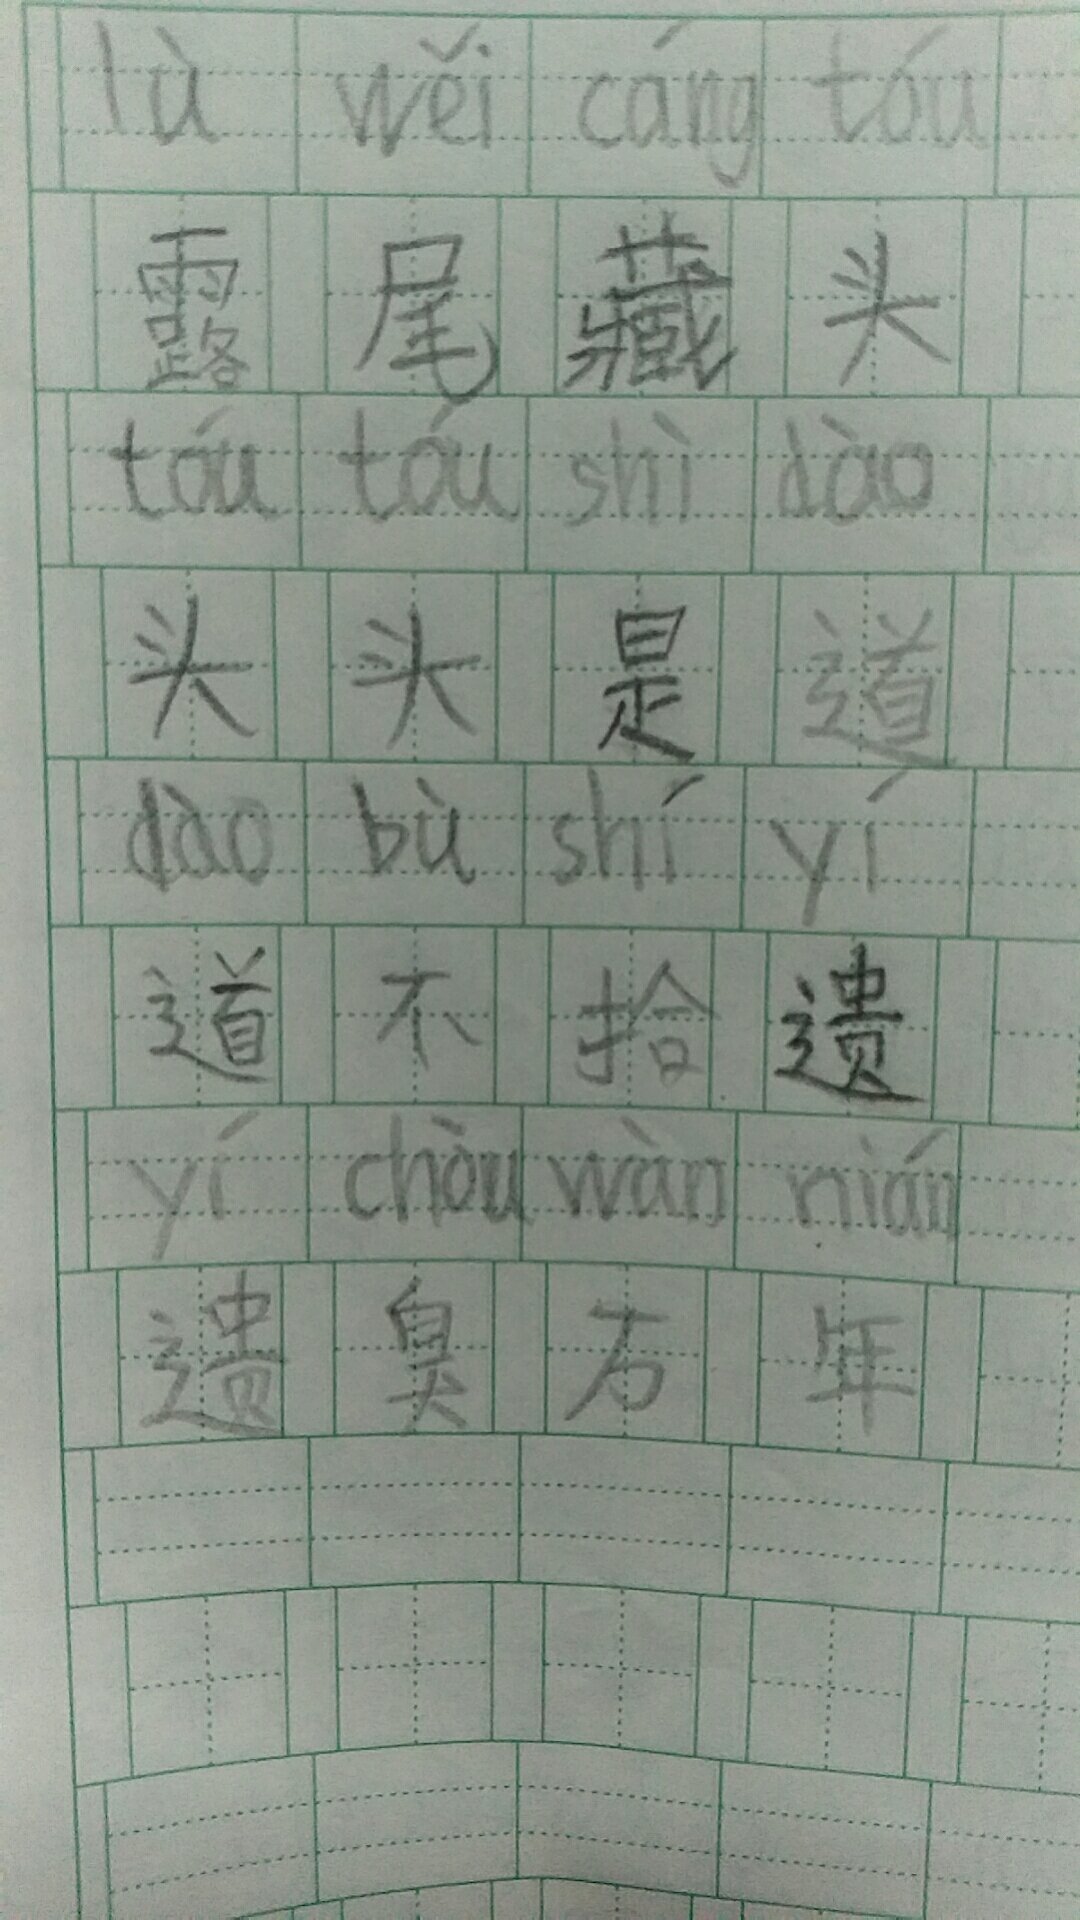 lù wěi cáng tóu
露尾藏头
tóu tóu shì dào
头头是道
dào bù shí yí
道不拾遗
yí chòu wàn nián
遗臭万年